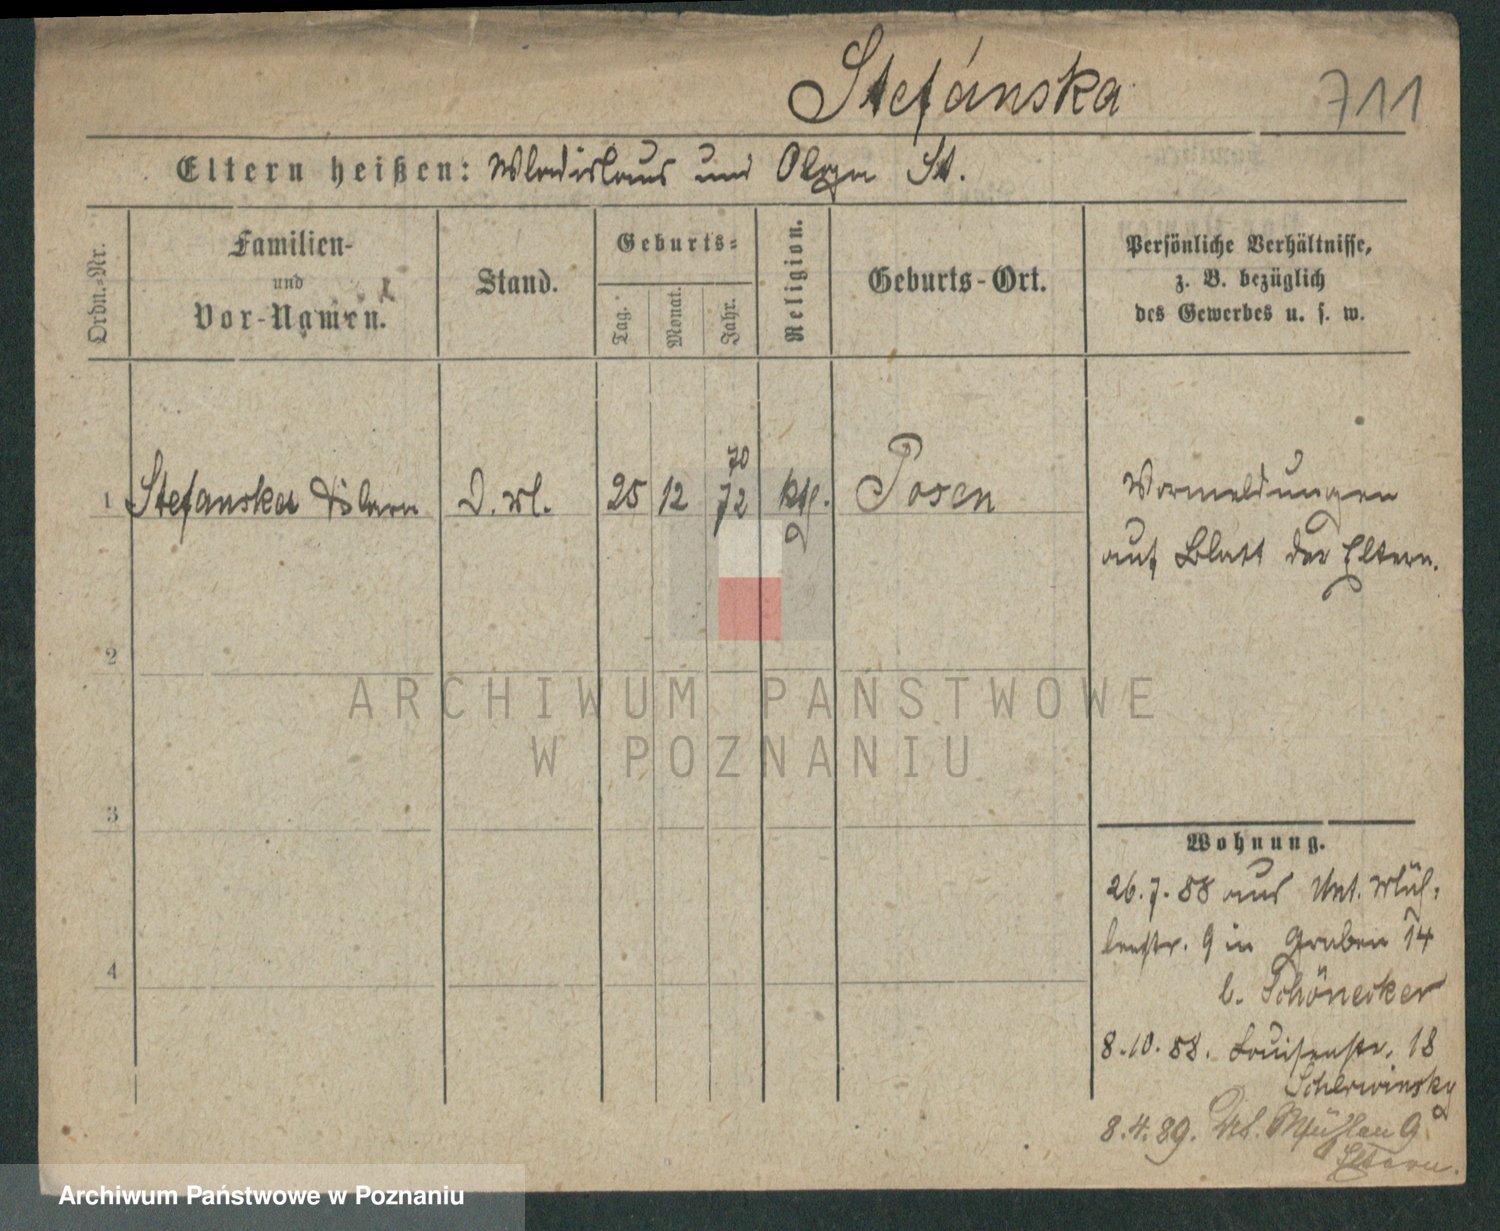 Stefánska 711
Eltern heißen: Wladislaus und Olga St.
Ordn.-Nr.
Familien-
und
Vor-Namen.
Stand.
Geburts-
Tag.
Monat.
Jahr.
Religion.
Geburts-Ort.
Persönliche Verhältnisse,
z. B. bezüglich
des Gewerbes u. s. w.
70
1 Stefanska 25 12 72 ktl. Posen
Vormeldungen
auf Blatt der Eltern.
2
ARCHIWUM PAŃSTWOWE
W POZNANIU
3
Wohnung.
26.7.88 aus Unt. Müh-
lenstr. 9 in Graben 14
b. Schönecker
4
8.10.88. Louisenstr. 18
Scherwinsky
8.4.89. Mühlen 9
Eltern.
Archiwum Państwowe w Poznaniu